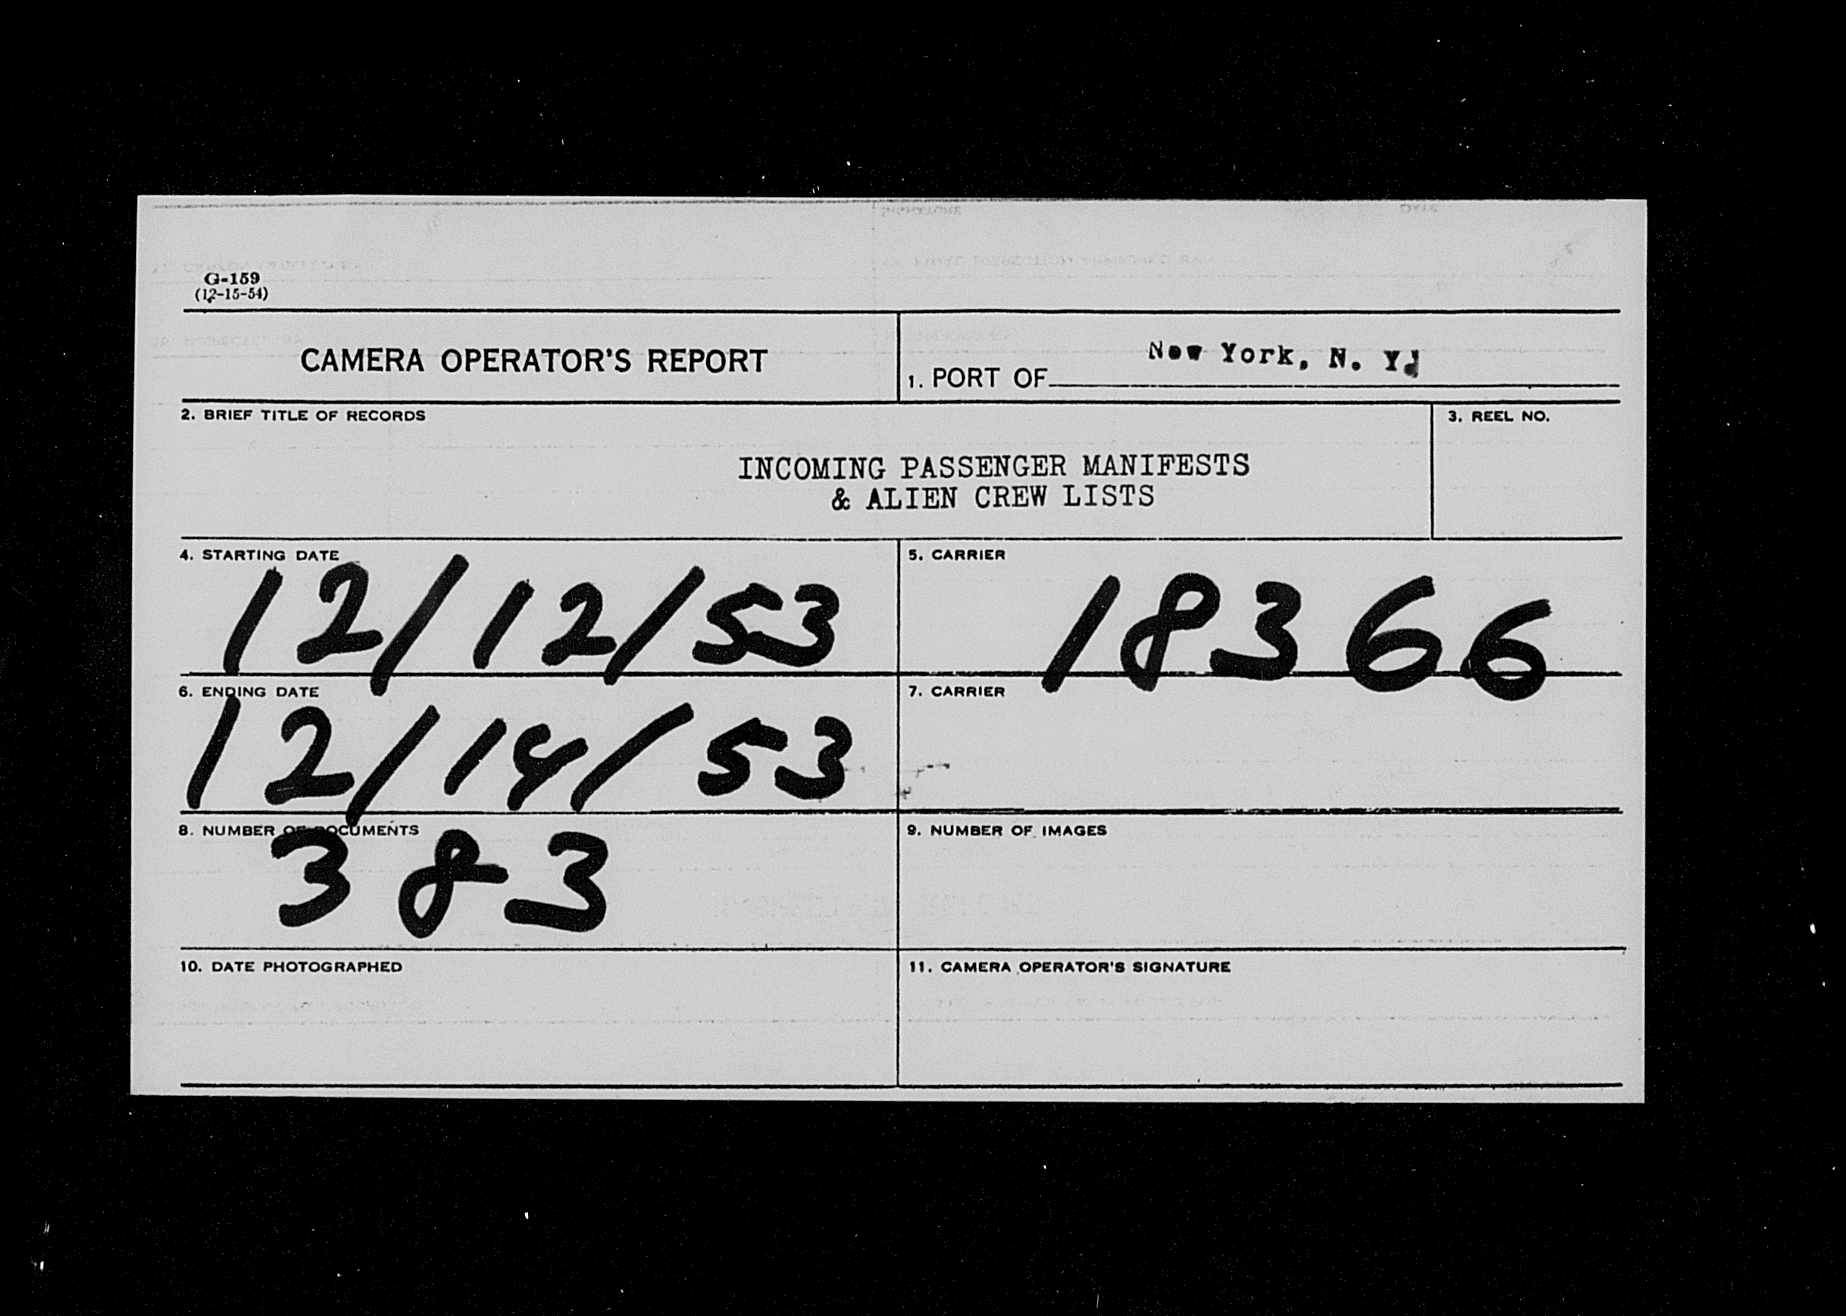 G-159
(12-15-54)
CAMERA OPERATOR'S REPORT
1. PORT OF New York, N. Y.
2. BRIEF TITLE OF RECORDS
3. REEL NO.
INCOMING PASSENGER MANIFESTS
& ALIEN CREW LISTS
4. STARTING DATE
12/12/53
5. CARRIER
18366
6. ENDING DATE
12/14/53
7. CARRIER
8. NUMBER OF DOCUMENTS
383
9. NUMBER OF IMAGES
10. DATE PHOTOGRAPHED
11. CAMERA OPERATOR'S SIGNATURE